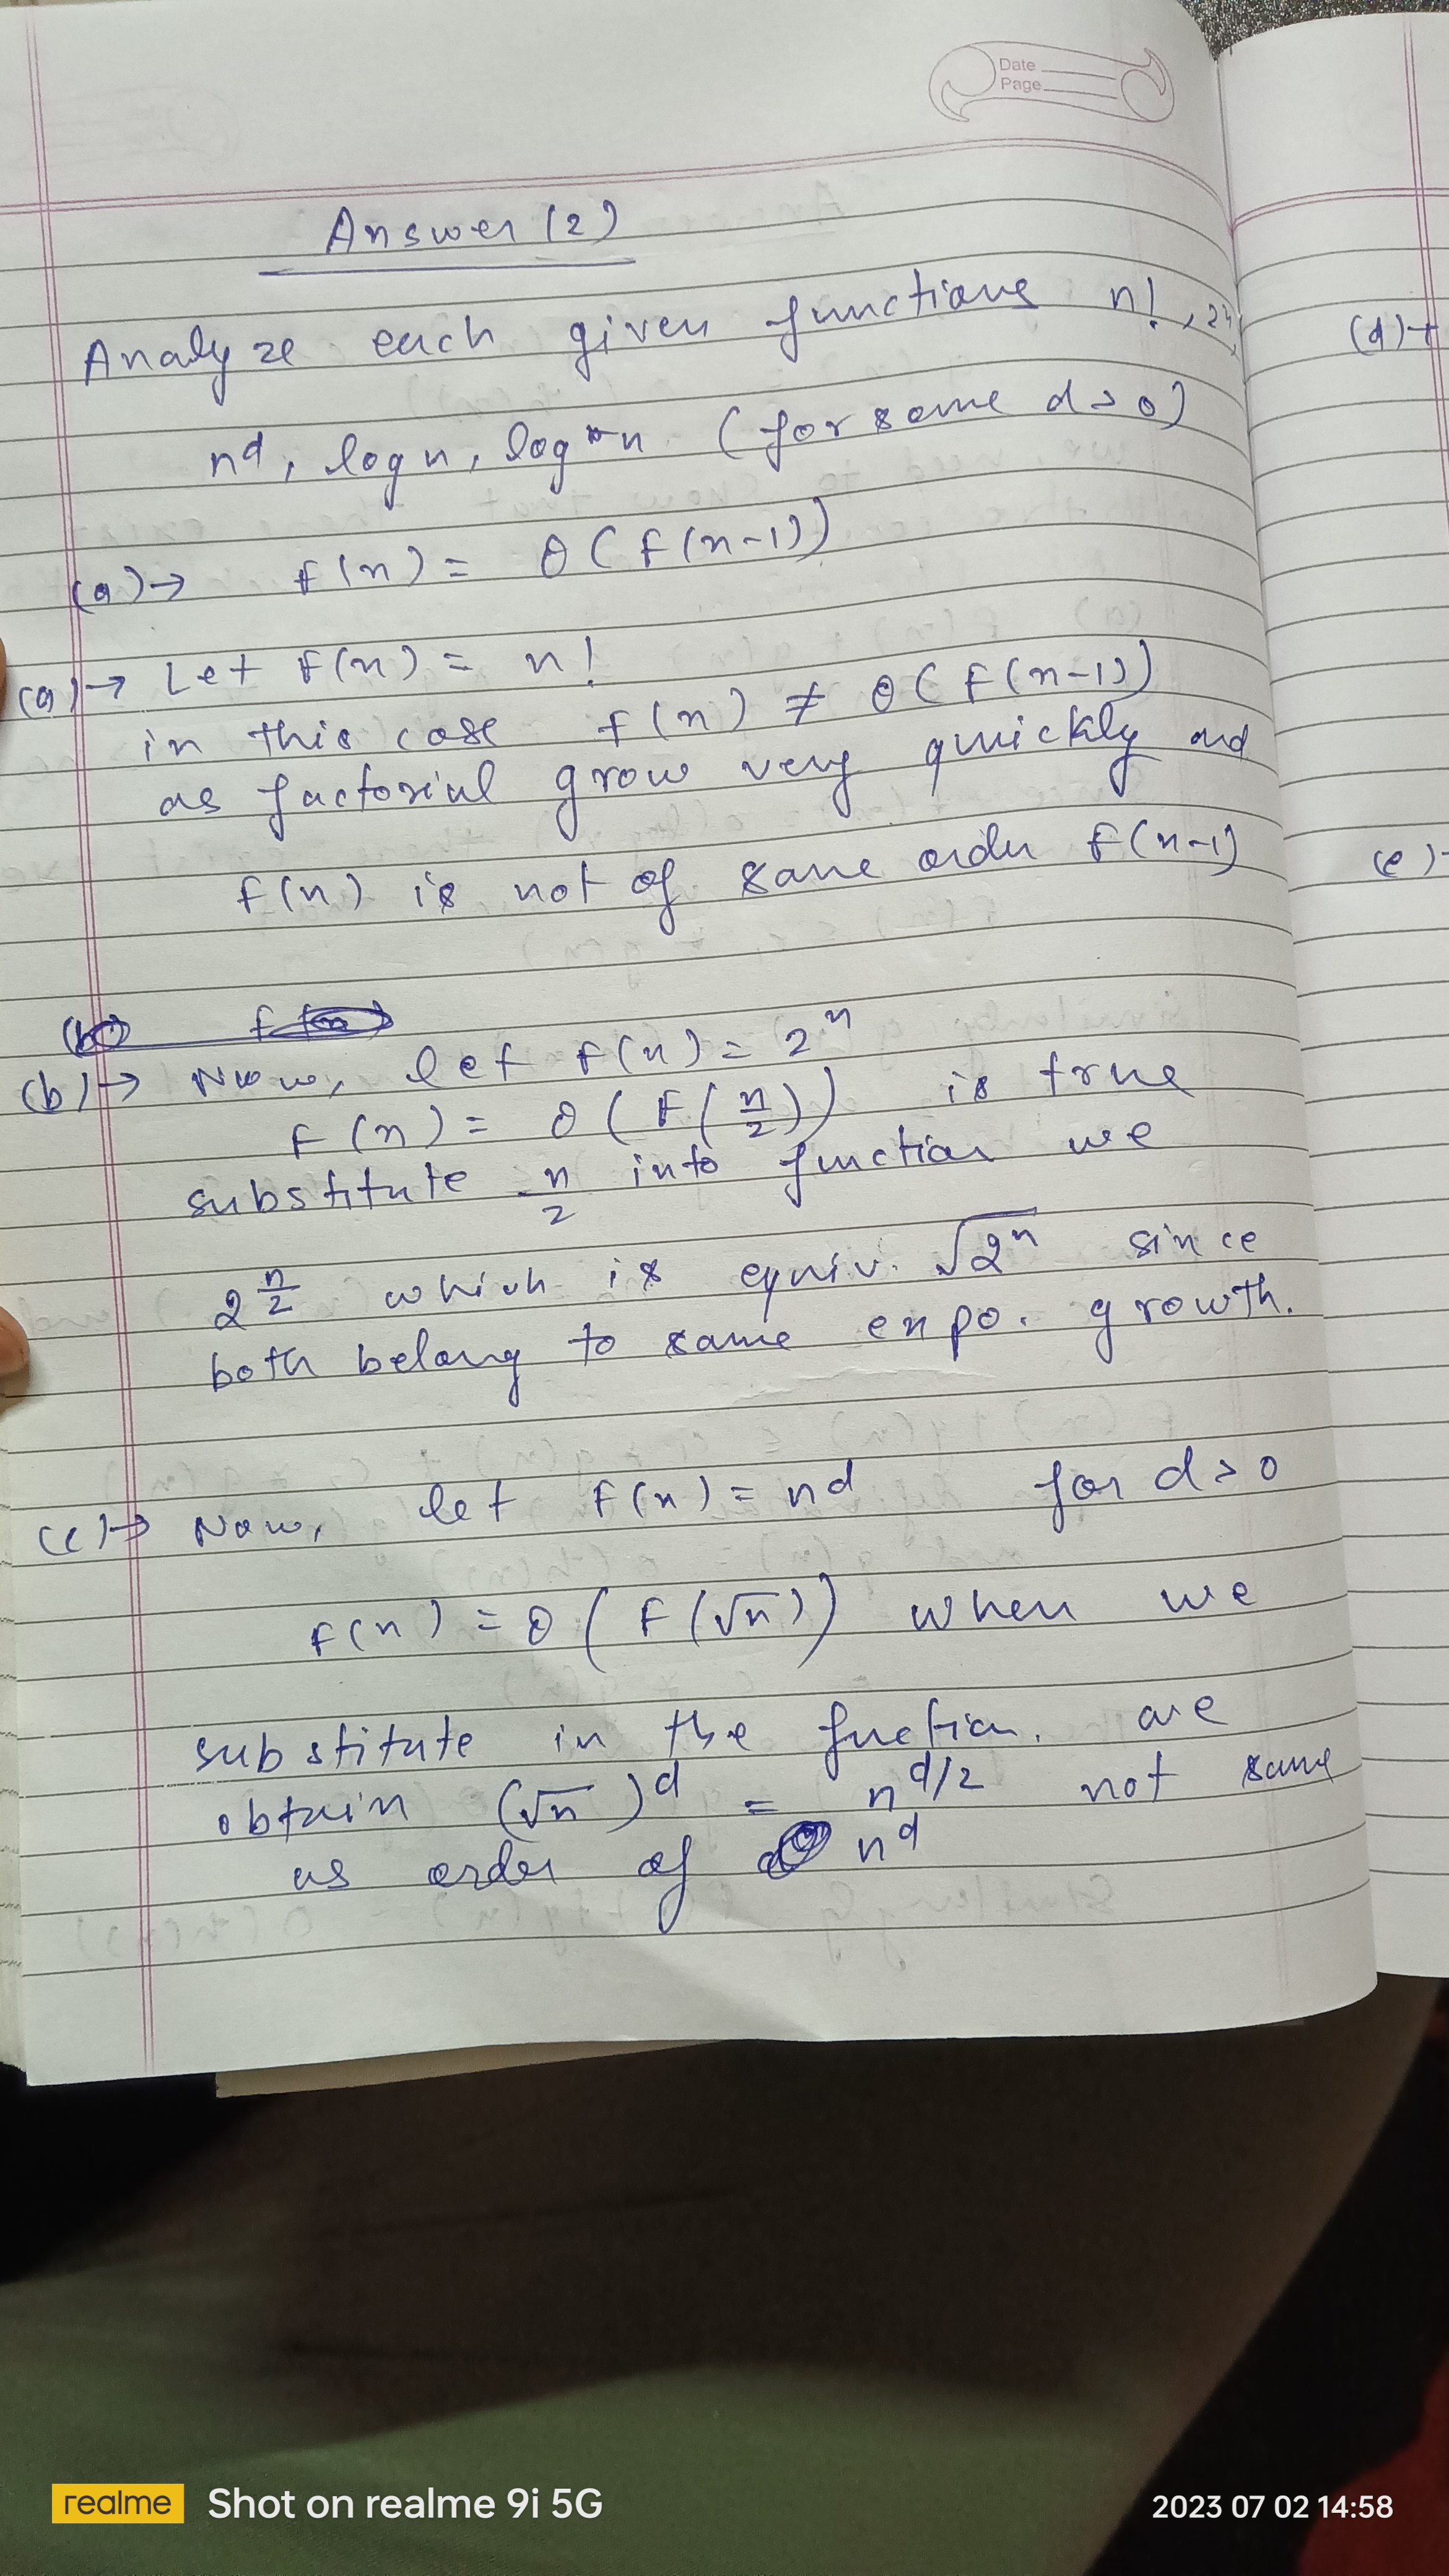 Date
Page
Answer (2)
Analyze each given functions n!, 2ⁿ,
nᵈ, log n, log*n (for some d>0)
(a)→ f(n) = θ(f(n-1))
(a)→ Let f(n) = n!
in this case f(n) ≠ θ(f(n-1))
as factorial grow very quickly and
f(n) is not of same order f(n-1)
(b)→ Now, let f(n) = 2ⁿ
f(n) = θ(f(n/2)) is true
substitute n/2 into function we
2^(n/2) which is equiv. √2ⁿ since
both belong to same expo. growth.
(c)→ Now, let f(n) = nᵈ for d>0
f(n) = θ(f(√n)) when we
substitute in the fuction. we
obtain (√n)ᵈ = n^(d/2) not same
as order of nᵈ
(d)→
(e)-
realme Shot on realme 9i 5G
2023 07 02 14:58